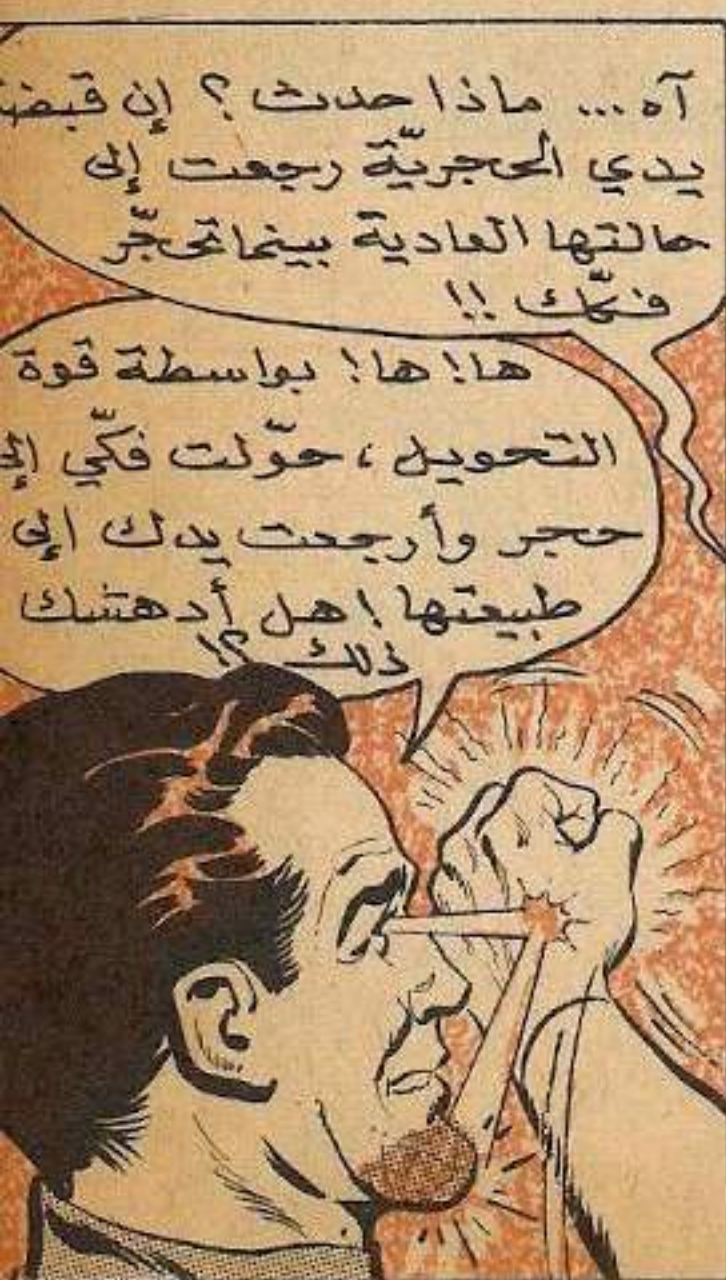 آه... ماذا حدث ؟ إن قبضة
يدي الحجريّة رجعت إلى
حالتها العادية بينما تحجّر
فكّك !!
ها! ها! بواسطة قوة
التحويل ، حوّلت فكّي إلى
حجر وأرجعت يدك إلى
طبيعتها ! هل أدهشك
ذلك ؟!